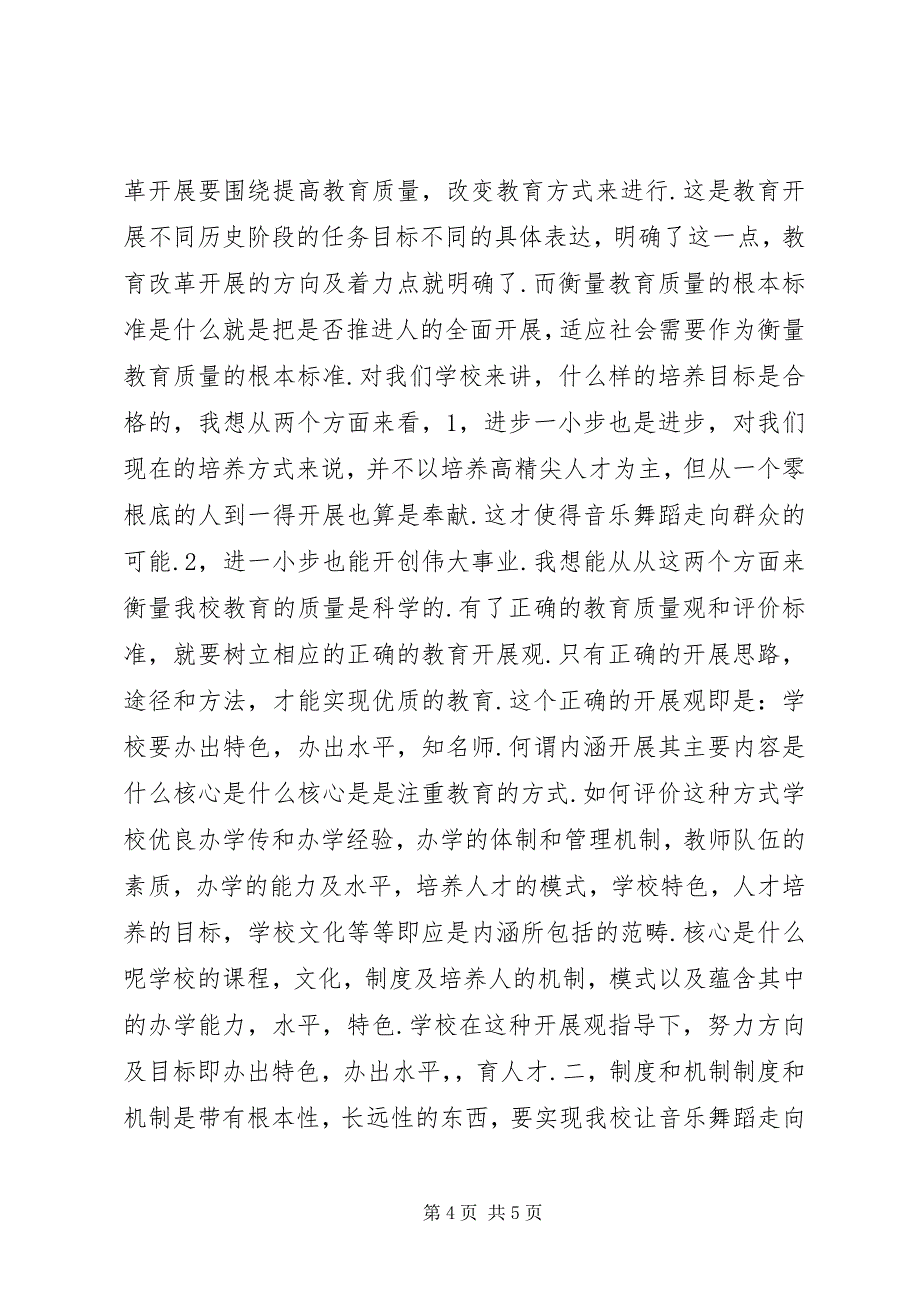 革开展要围绕提高教育质量，改变教育方式来进行.这是教育开
展不同历史阶段的任务目标不同的具体表达，明确了这一点，教
育改革开展的方向及着力点就明确了.而衡量教育质量的根本标
准是什么就是把是否推进人的全面开展，适应社会需要作为衡量
教育质量的根本标准.对我们学校来讲，什么样的培养目标是合
格的，我想从两个方面来看，1，进步一小步也是进步，对我们
现在的培养方式来说，并不以培养高精尖人才为主，但从一个零
根底的人到一得开展也算是奉献.这才使得音乐舞蹈走向群众的
可能.2，进一小步也能开创伟大事业.我想能从从这两个方面来
衡量我校教育的质量是科学的.有了正确的教育质量观和评价标
准，就要树立相应的正确的教育开展观.只有正确的开展思路，
途径和方法，才能实现优质的教育.这个正确的开展观即是：学
校要办出特色，办出水平，知名师.何谓内涵开展其主要内容是
什么核心是什么核心是是注重教育的方式.如何评价这种方式学
校优良办学传和办学经验，办学的体制和管理机制，教师队伍的
素质，办学的能力及水平，培养人才的模式，学校特色，人才培
养的目标，学校文化等等即应是内涵所包括的范畴.核心是什么
呢学校的课程，文化，制度及培养人的机制，模式以及蕴含其中
的办学能力，水平，特色.学校在这种开展观指导下，努力方向
及目标即办出特色，办出水平，，育人才.二，制度和机制制度和
机制是带有根本性，长远性的东西，要实现我校让音乐舞蹈走向
第 4 页 共 5 页